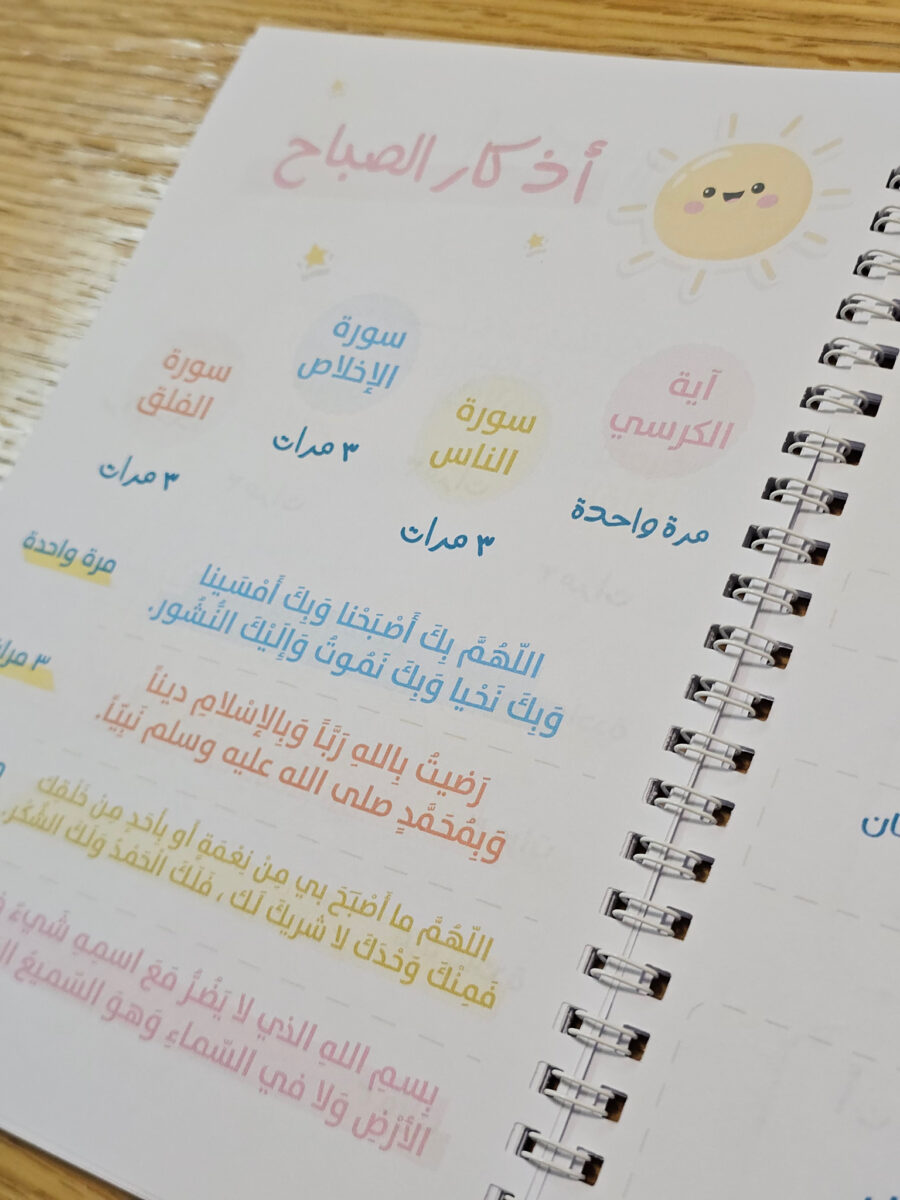 أذكار الصباح
آية
الكرسي
مرة واحدة
سورة
الناس
٣ مرات
سورة
الإخلاص
٣ مرات
سورة
الفلق
٣ مرات
اللّهُمَّ بِكَ أَصْبَحْنا وَبِكَ أَمْسَينا
وَبِكَ نَحْيا وَبِكَ نَمُوتُ وَإِلَيْكَ النُّشُور.
مرة واحدة
رَضيتُ بِاللهِ رَبَّاً وَبِالإسْلامِ ديناً
وَبِمُحَمَّدٍ صلى الله عليه وسلم نَبِيّاً.
٣ مرات
اللّهُمَّ ما أَصْبَحَ بي مِنْ نِعْمَةٍ أو بأحَدٍ مِنْ خَلْقِك
فَمِنْكَ وَحْدَكَ لا شريكَ لَك ، فَلَكَ الحَمْدُ وَلَكَ الشُكر.
بِسمِ اللهِ الذي لا يَضُرُّ مَعَ اسمِهِ شَيءٌ
الأرْضِ وَلا في السّماءِ وَهوَ السّميعُ